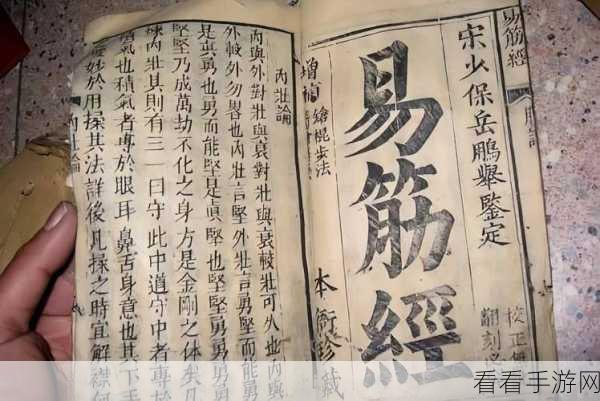 易筋經
宋少保岳鵬舉鑒定
校正無
翻刻必
易筋經
增補
鎗棍步法
本衙珍藏
內壯論
內與外對壯與衰對壯與衰較壯可久也內與
外較外勿畧也內壯言堅外壯言勇堅而能勇
是真勇也勇而能堅是真堅也堅堅勇勇勇勇
堅堅乃成萬劫不化之身方是金剛之体矣凡
練內壯其則有三一曰守此中道守中者專於
積氣也積氣者專於眼耳鼻舌身意也其下手
之妙於用揉其法詳後凡揉之時宜解襟仰
內壯論
看看手游网